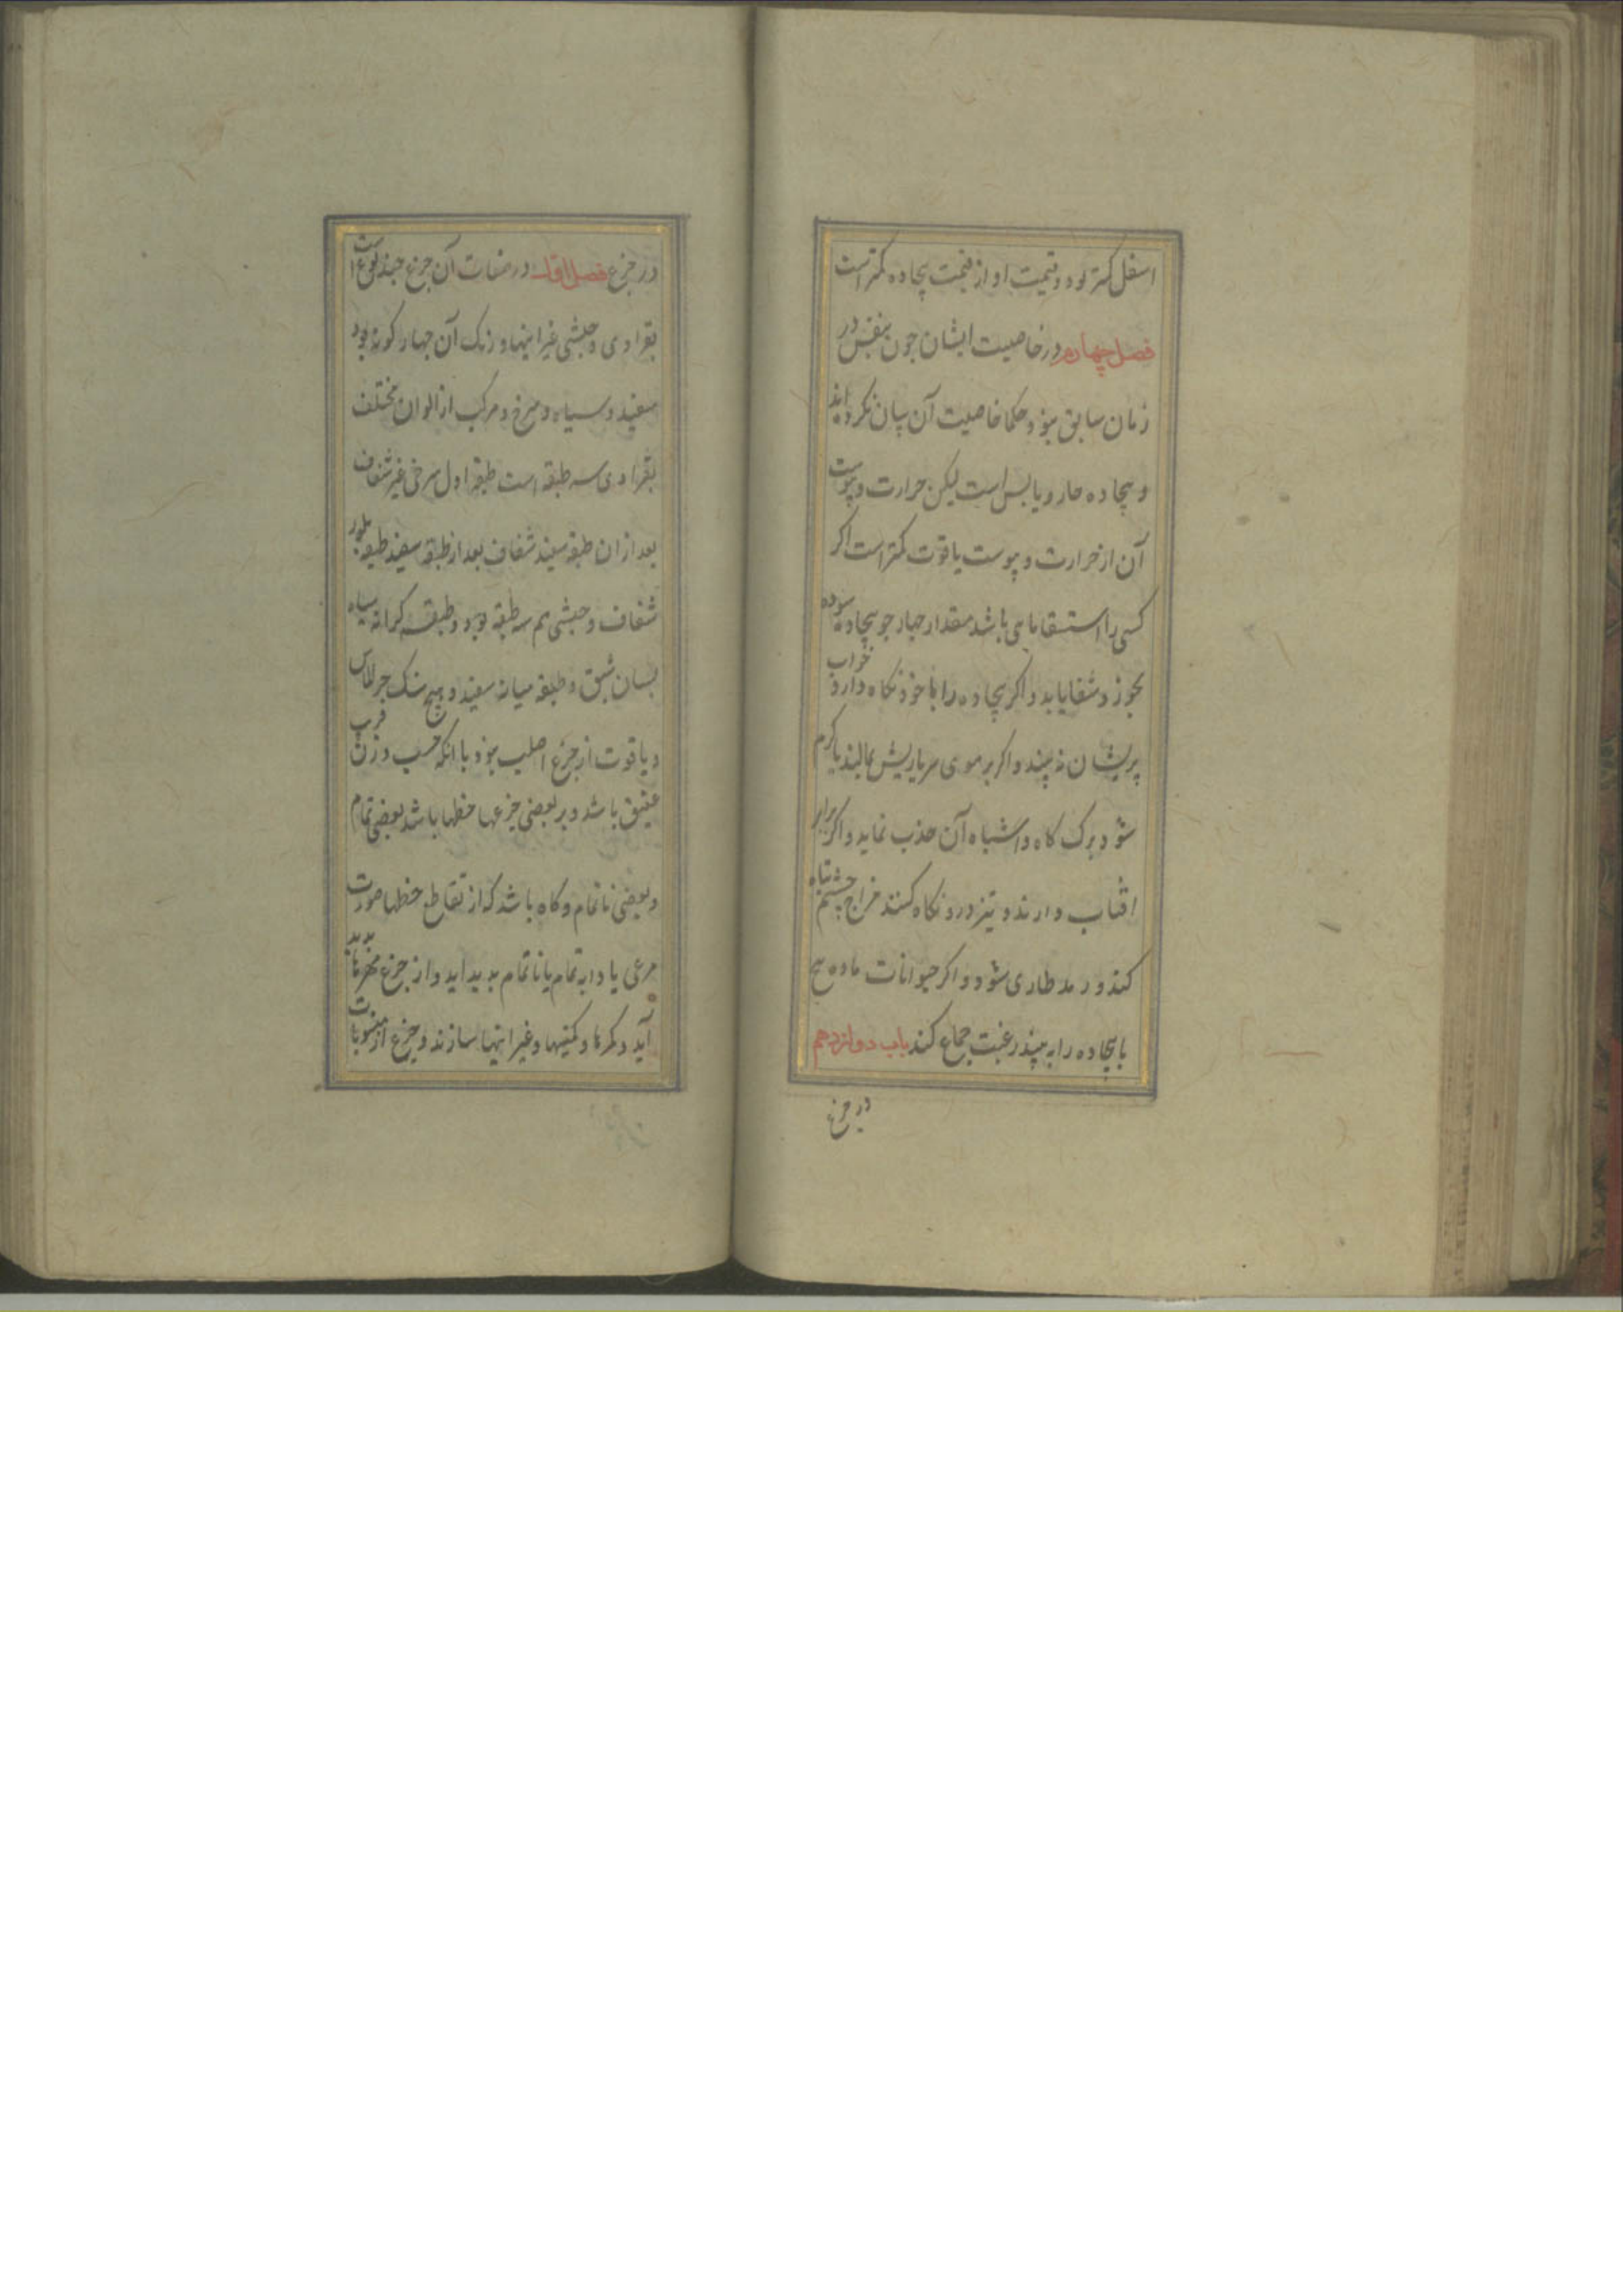 اسفل کمتر بود و قیمت او از قیمت بیجاده کمتر است
فصل چهارم در خاصیت ایشان چون بنفش در
زمان سابق نبوذ و حکما خاصیت آن بیان نکرده اند
و بیجاده حار و یابس است لیکن حرارت و یبوست
آن از حرارت و یبوست یاقوت کمتر است اکر
کسی را استسقا باشد مقدار چهار جو بیجاده سوده
بخورد شفا یابد و اکر بیجاده را با خوذ نکاه دارد خواب
پریشان نبیند و اکر بر موی سر یا ریش بمالند یا کرم
شود برک کاه و اشباه آن جذب نماید و اکر برابر
افتاب دارند و تیز درو نکاه کنند مزاج چشم تباه
کند و رمد طاری شود و اکر حیوانات ماده
بابیجاده را به بینذ رغبت جماع کند باب دوازدهم
در جزع
در جزع فصل اول در صفات آن جزع چند نوع است
بقراوی و حبشی غیر اینها و رنک آن چهار کونه بود
سفید و سیاه و سرخ و مرکب از الوان مختلف
بقراوی سه طبقه است طبقه اول سرخی غیر شفاف
بعد از ان طبقه سفید شفاف بعد از طبقه سفید طبقه بلور
شفاف و حبشی هم سه طبقه بود دو طبقه کرانه سیاه
بسان شبق و طبقه میانه سفید و هیچ سنک جز الماس
و یاقوت از جزع اصلب نبوذ با انکه حسب وزن قریب
عقیق باشد و بر بعضی جزعها خطها باشد بعضی تمام
و بعضی ناتمام و کاه باشد که از تقاطع خطها صورت
مرغی یا دابه تمام یا ناتمام بدید اید و از جزع مهرها بدید
آید و کمرها و نکینها و غیر اینها سازند و جزع از منسوبات